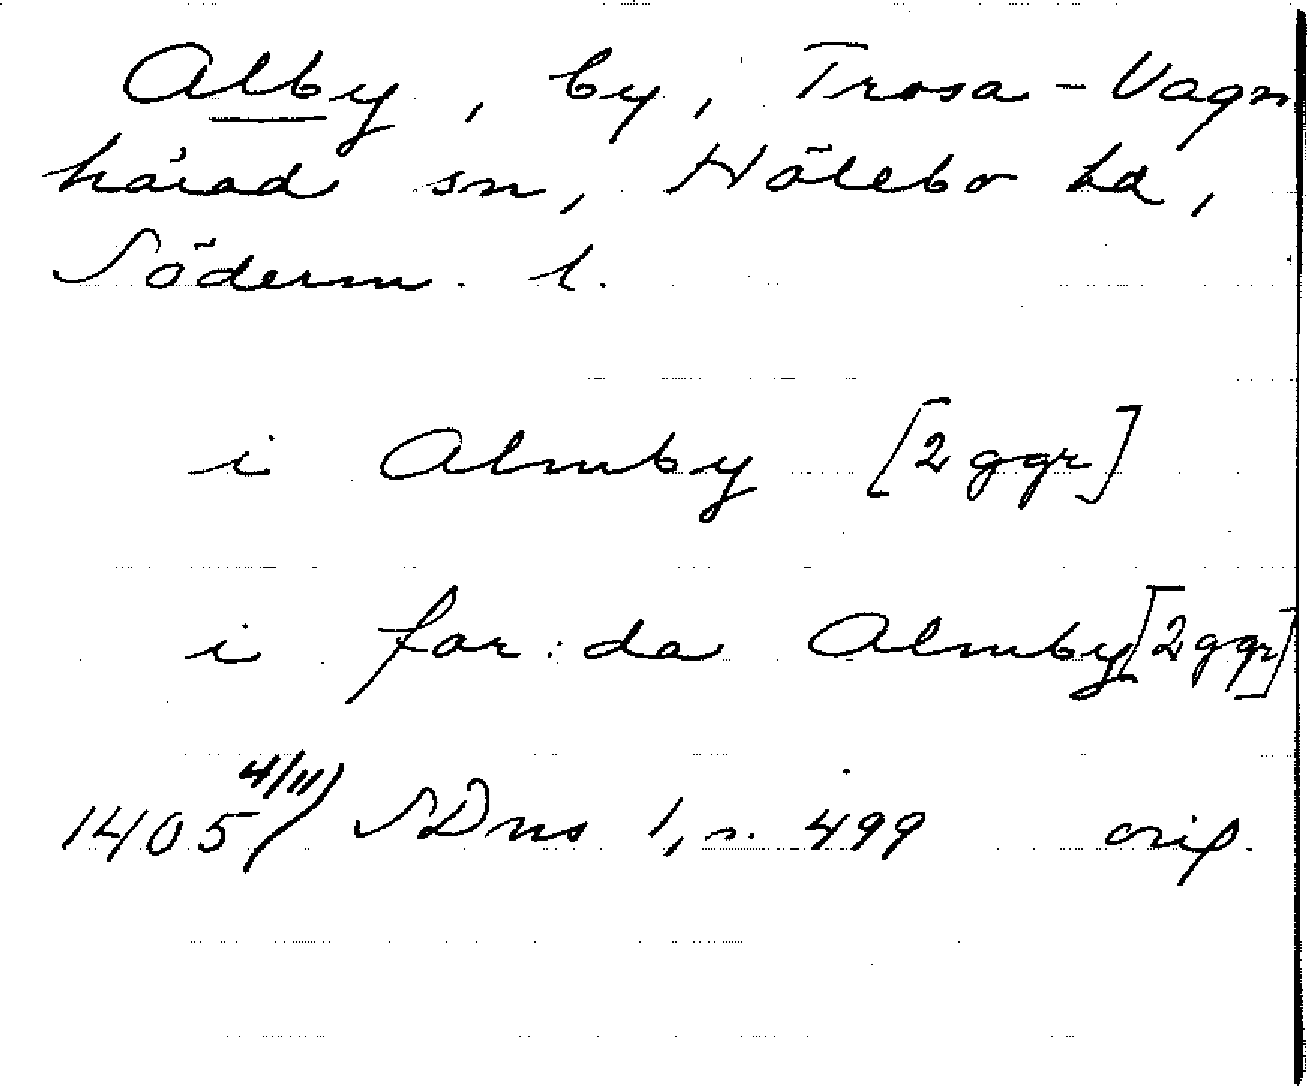 Alby, by, Trosa-Vagn
härad sn, Hölebo hd,
Söderm. l.
i Almby [2 ggr]
i for:da Almby [2 ggr]
1405 4/11) SDns 1, s. 499 orig.